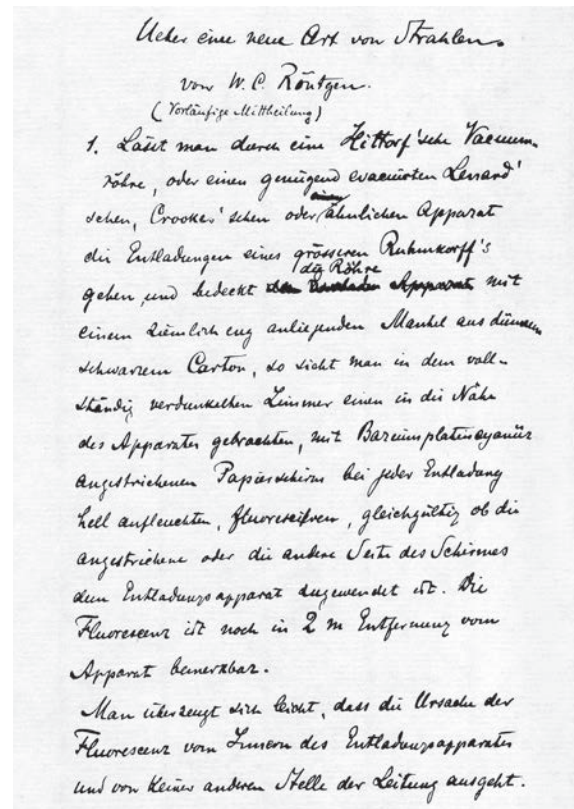 Ueber eine neue Art von Strahlen.
von W. C. Röntgen.
(Vorläufige Mittheilung)
1. Lässt man durch eine Hittorf'sche Vacuum-
röhre, oder einen genügend evacuirten Lenard'
schen, Crookes'schen oder einen ähnlichen Apparat
die Entladungen eines grösseren Ruhmkorff's
gehen, und bedeckt die Röhre mit
einem ziemlich eng anliegenden Mantel aus dünnem
schwarzem Carton, so sieht man in dem voll-
ständig verdunkelten Zimmer einen in die Nähe
des Apparates gebrachten, mit Bariumplatincyanür
angestrichenen Papierschirm bei jeder Entladung
hell aufleuchten, fluoresciren, gleichgültig ob die
angestrichene oder die andere Seite des Schirmes
dem Entladungsapparat zugewendet ist. Die
Fluorescenz ist noch in 2 m Entfernung vom
Apparat bemerkbar.
Man überzeugt sich leicht, dass die Ursache der
Fluorescenz vom Innern des Entladungsapparates
und von keiner anderen Stelle der Leitung ausgeht.